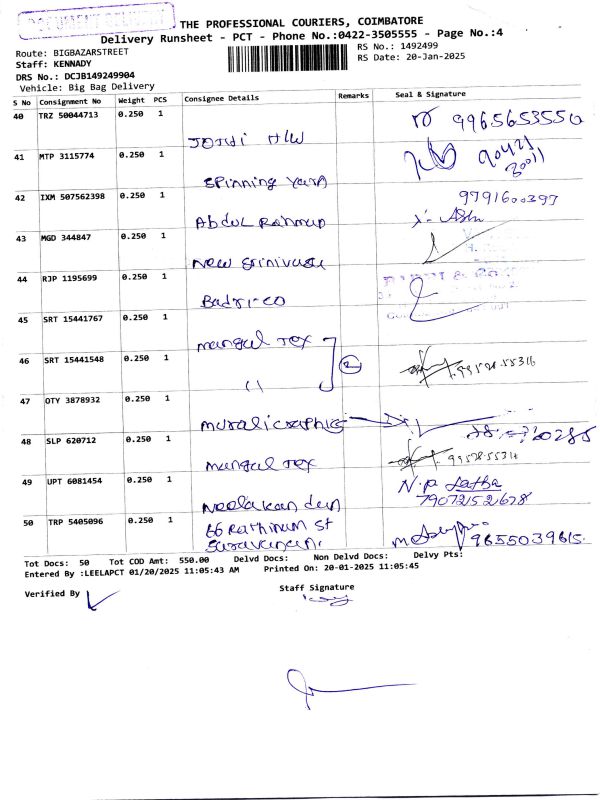 DOCUMENT DELIVERY
THE PROFESSIONAL COURIERS, COIMBATORE
Delivery Runsheet - PCT - Phone No.:0422-3505555 - Page No.:4
Route: BIGBAZARSTREET
RS No.: 1492499
Staff: KENNADY
RS Date: 20-Jan-2025
DRS No.: DCJB149249904
Vehicle: Big Bag Delivery
S No Consignment No Weight PCS Consignee Details Remarks Seal & Signature
40 TRZ 50044713 0.250 1
9965653550
41 MTP 3115774 0.250 1
90421
spinning yarn
42 IXM 507562398 0.250 1
9791600397
Abdul Rahman
43 MGD 344847 0.250 1
New Srinivasa
44 RJP 1195699 0.250 1
Badri-co
45 SRT 15441767 0.250 1
mangal Tex
2
46 SRT 15441548 0.250 1
99528 55316
47 OTY 3878932 0.250 1
muraligraphic
48 SLP 620712 0.250 1
mangal Tex
49 UPT 6081454 0.250 1
N.P Latha
790721521678
50 TRP 5405096 0.250 1
66 Rathinam St
9655039615
Tot Docs: 50 Tot COD Amt: 550.00 Delvd Docs: Non Delvd Docs: Delvy Pts:
Entered By :LEELAPCT 01/20/2025 11:05:43 AM Printed On: 20-01-2025 11:05:45
Verified By
Staff Signature